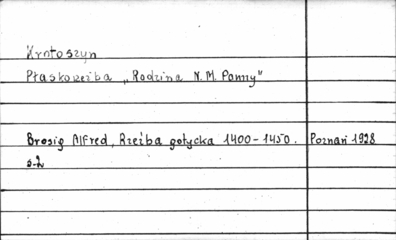 Krotoszyn
Płaskorzeźba „Rodzina N. M. Panny"
Brosig Alfred, Rzeźba gotycka 1400-1450. Poznań 1928
s.2